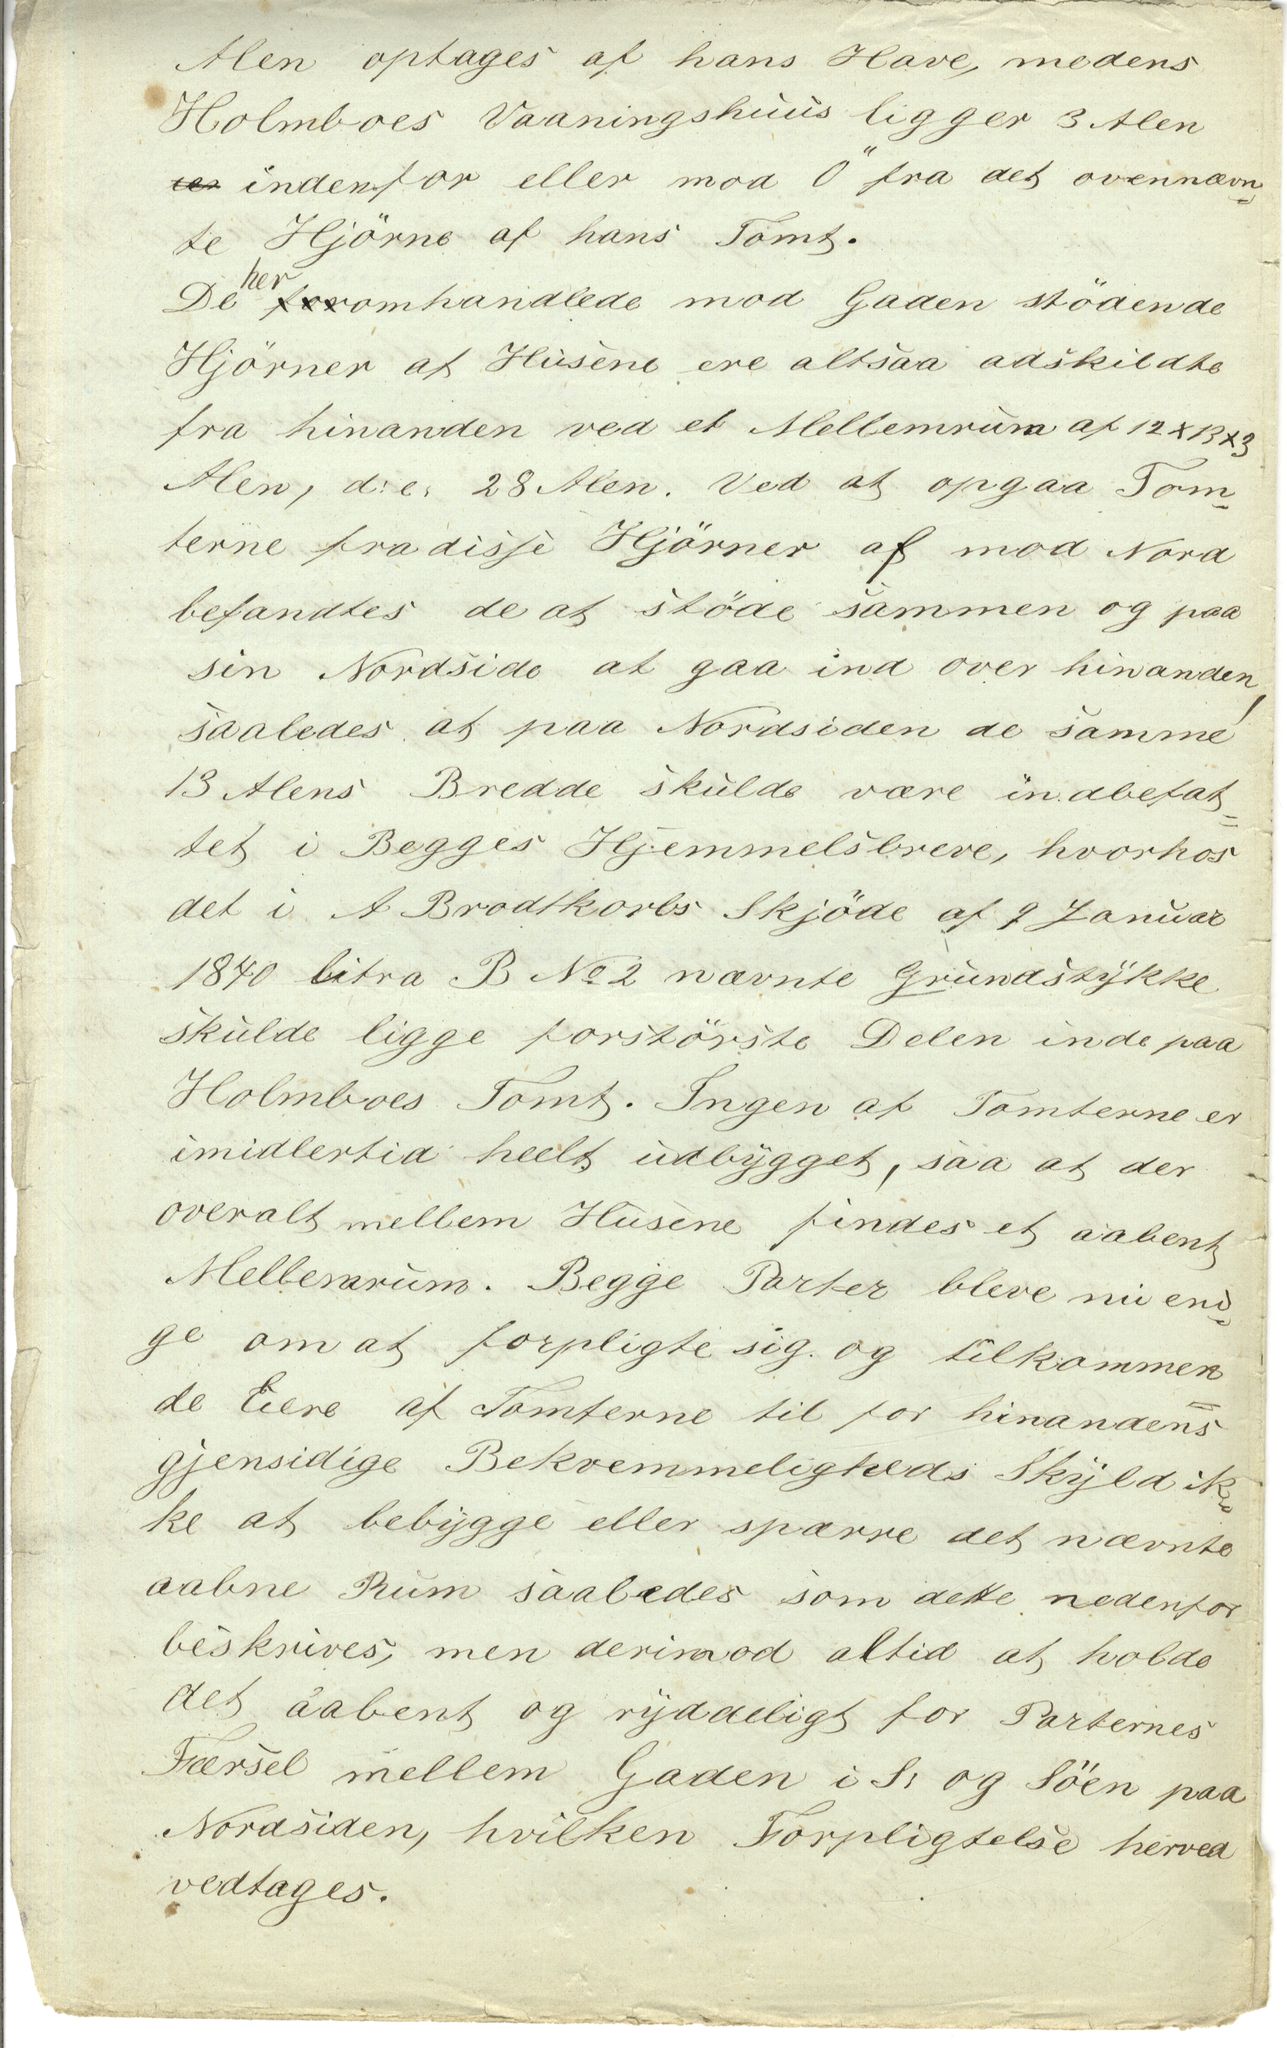 Alen optages af hans Have, medens
Holmboes Vaaningshuus ligger 3 Alen
indenfor eller mod Ö fra det ovennævn-
te Hjörne af hans Tomt.
De her omhandlede mod Gaden stödende
Hjörner af Husene ere altsaa adskildte
fra hinanden ved et Mellemrum af 12 x 13 x 3
Alen, d: e: 28 Alen. Ved at opgaa Tom-
terne fra disse Hjörner af mod Nord
befandtes de at stöde sammen og paa
sin Nordside at gaa ind over hinanden,
saaledes at paa Nordsiden de samme
13 Alens Bredde skulde være indbefat-
tet i Begges Hjemmelsbreve, hvorhos
det i A Brodtkorbs Skjöde af 9 Januar
1840 litra B No 2 nævnte Grundstykke
skulde ligge forstörste Delen inde paa
Holmboes Tomt. Ingen af Tomterne er
imidlertid heelt udbygget, saa at der
overalt mellem Husene findes et aabent
Mellemrum. Begge Parter bleve nu eni-
ge om at forpligte sig og tilkommen
de Eiere af Tomterne til for hinandens
gjensidige Bekvemmeligheds Skyld ik-
ke at bebygge eller spærre det nævnte
aabne Rum saaledes som dette nedenfor
beskrives, men derimod altid at holde
det aabent og ryddeligt for Parternes
Færsel mellem Gaden i S: og Söen paa
Nordsiden, hvilken Forpligtelse herved
vedtages.